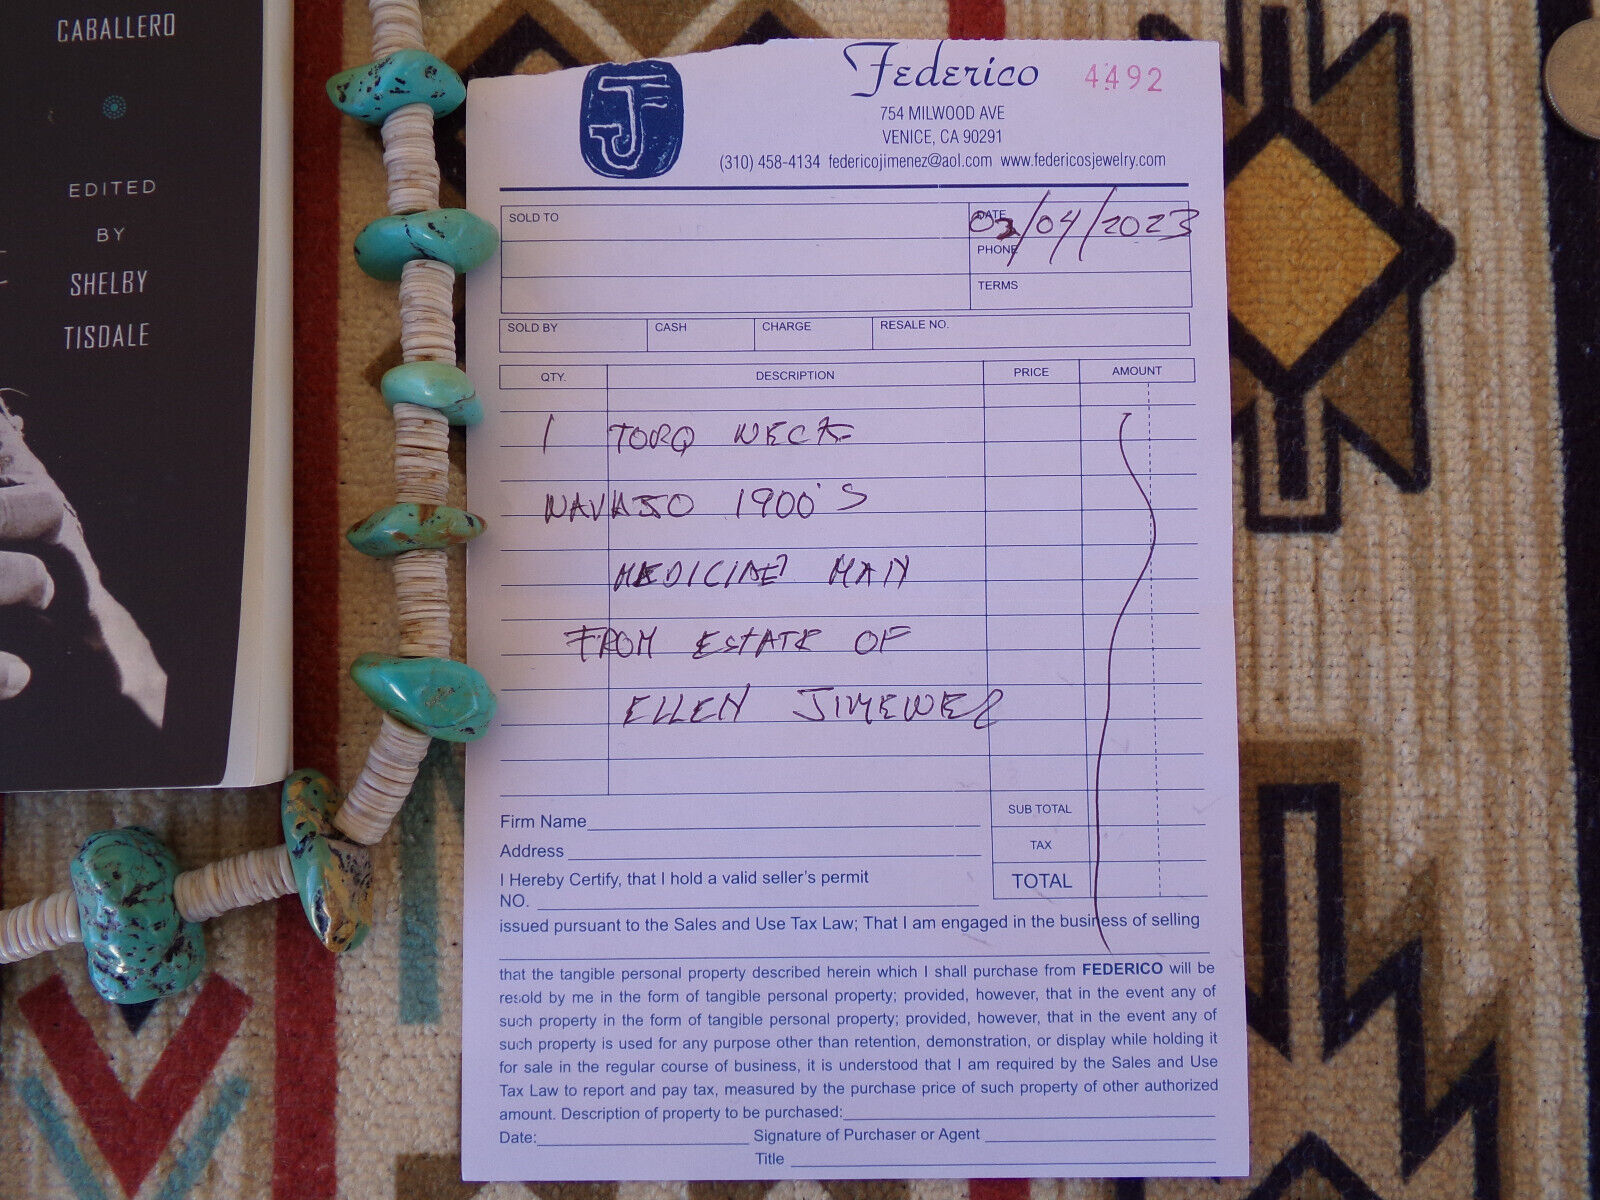 CABALLERO
EDITED
BY
SHELBY
TISDALE
J
Federico
4492
754 MILWOOD AVE
VENICE, CA 90291
(310) 458-4134 federicojimenez@aol.com www.federicosjewelry.com
SOLD TO
DATE
03/04/2023
PHONE
TERMS
SOLD BY CASH CHARGE RESALE NO.
QTY. DESCRIPTION PRICE AMOUNT
1 TORQ NECK
NAVAJO 1900'S
MEDICINE MAN
FROM ESTATE OF
ELLEN JIMENEZ
SUB TOTAL
TAX
TOTAL
Firm Name
Address
I Hereby Certify, that I hold a valid seller's permit
NO.
issued pursuant to the Sales and Use Tax Law; That I am engaged in the business of selling
that the tangible personal property described herein which I shall purchase from FEDERICO will be
resold by me in the form of tangible personal property; provided, however, that in the event any of
such property in the form of tangible personal property; provided, however, that in the event any of
such property is used for any purpose other than retention, demonstration, or display while holding it
for sale in the regular course of business, it is understood that I am required by the Sales and Use
Tax Law to report and pay tax, measured by the purchase price of such property of other authorized
amount. Description of property to be purchased:
Date: Signature of Purchaser or Agent
Title